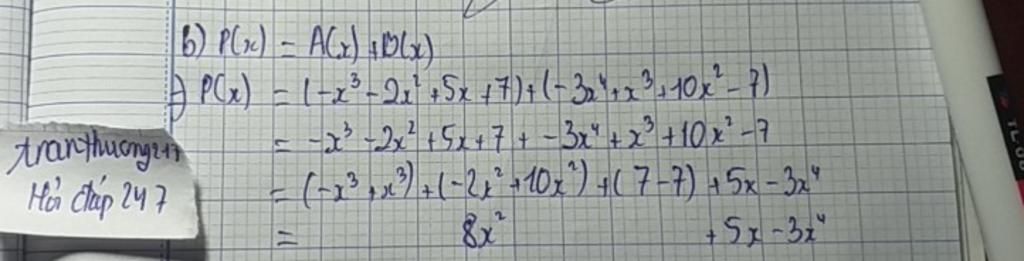 b) P(x) = A(x) + B(x)
⇒ P(x) = (-x³ - 2x² + 5x + 7) + (-3x⁴ + x³ + 10x² - 7)
= -x³ - 2x² + 5x + 7 + -3x⁴ + x³ + 10x² - 7
= (-x³ + x³) + (-2x² + 10x²) + (7 - 7) + 5x - 3x⁴
= 8x² + 5x - 3x⁴
tranthuong217
Hỏi đáp 247